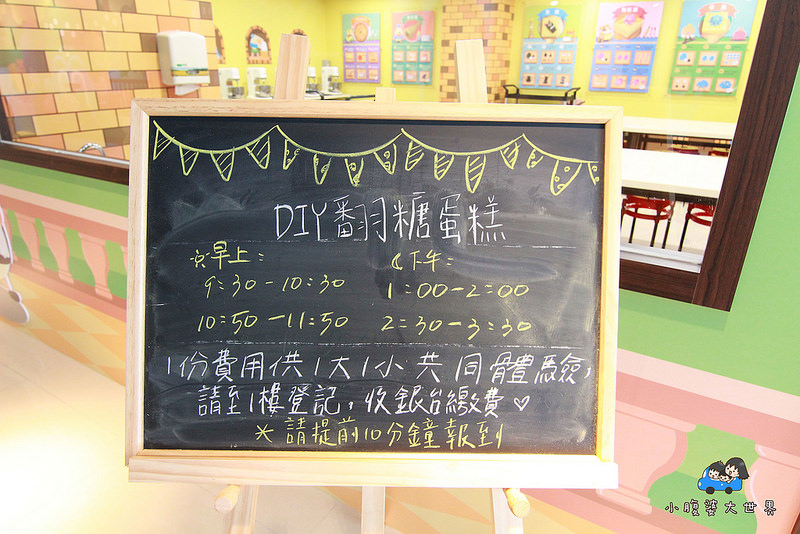 DIY翻糖蛋糕
早上：
9：30-10：30
10：50-11：50
下午：
1：00-2：00
2：30-3：30
1份費用供1大1小共同體驗，
請至1樓登記，收銀台繳費♡
＊請提前10分鐘報到
小腹婆大世界